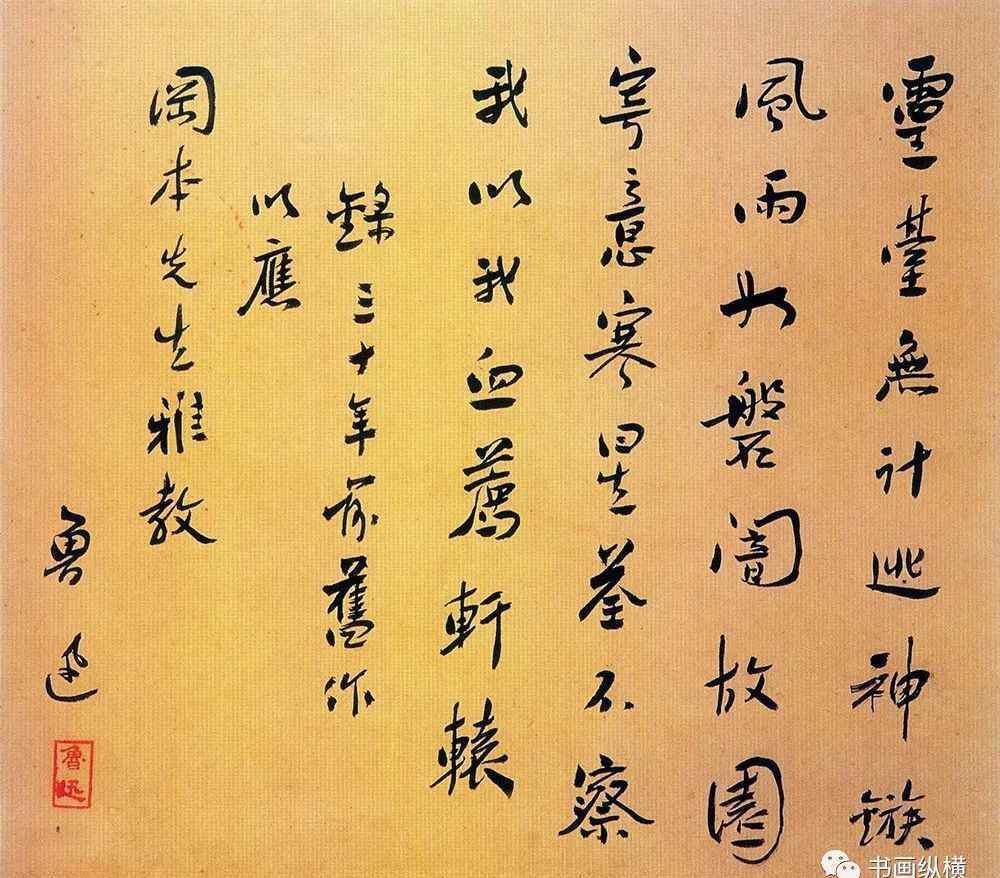 靈臺無計逃神鏃
風雨如磐闇故園
寄意寒星荃不察
我以我血薦軒轅
錄三十年前舊作
以應
岡本先生雅教
魯迅
魯迅
书画纵横